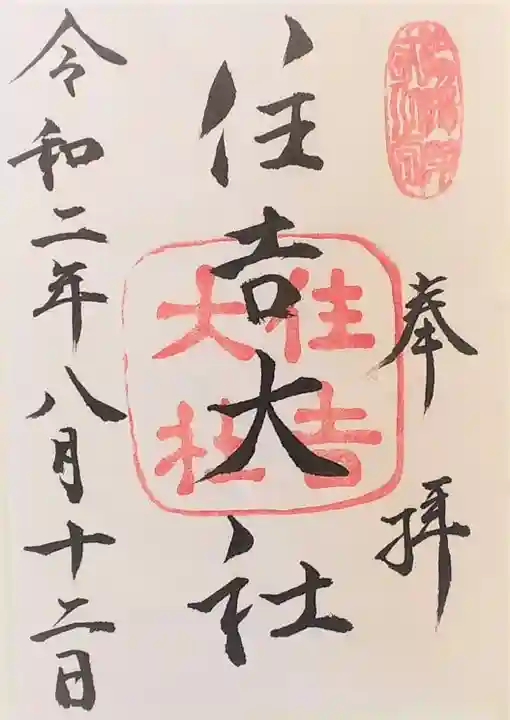 奉拝
住吉大社
住吉大社
令和二年八月十二日